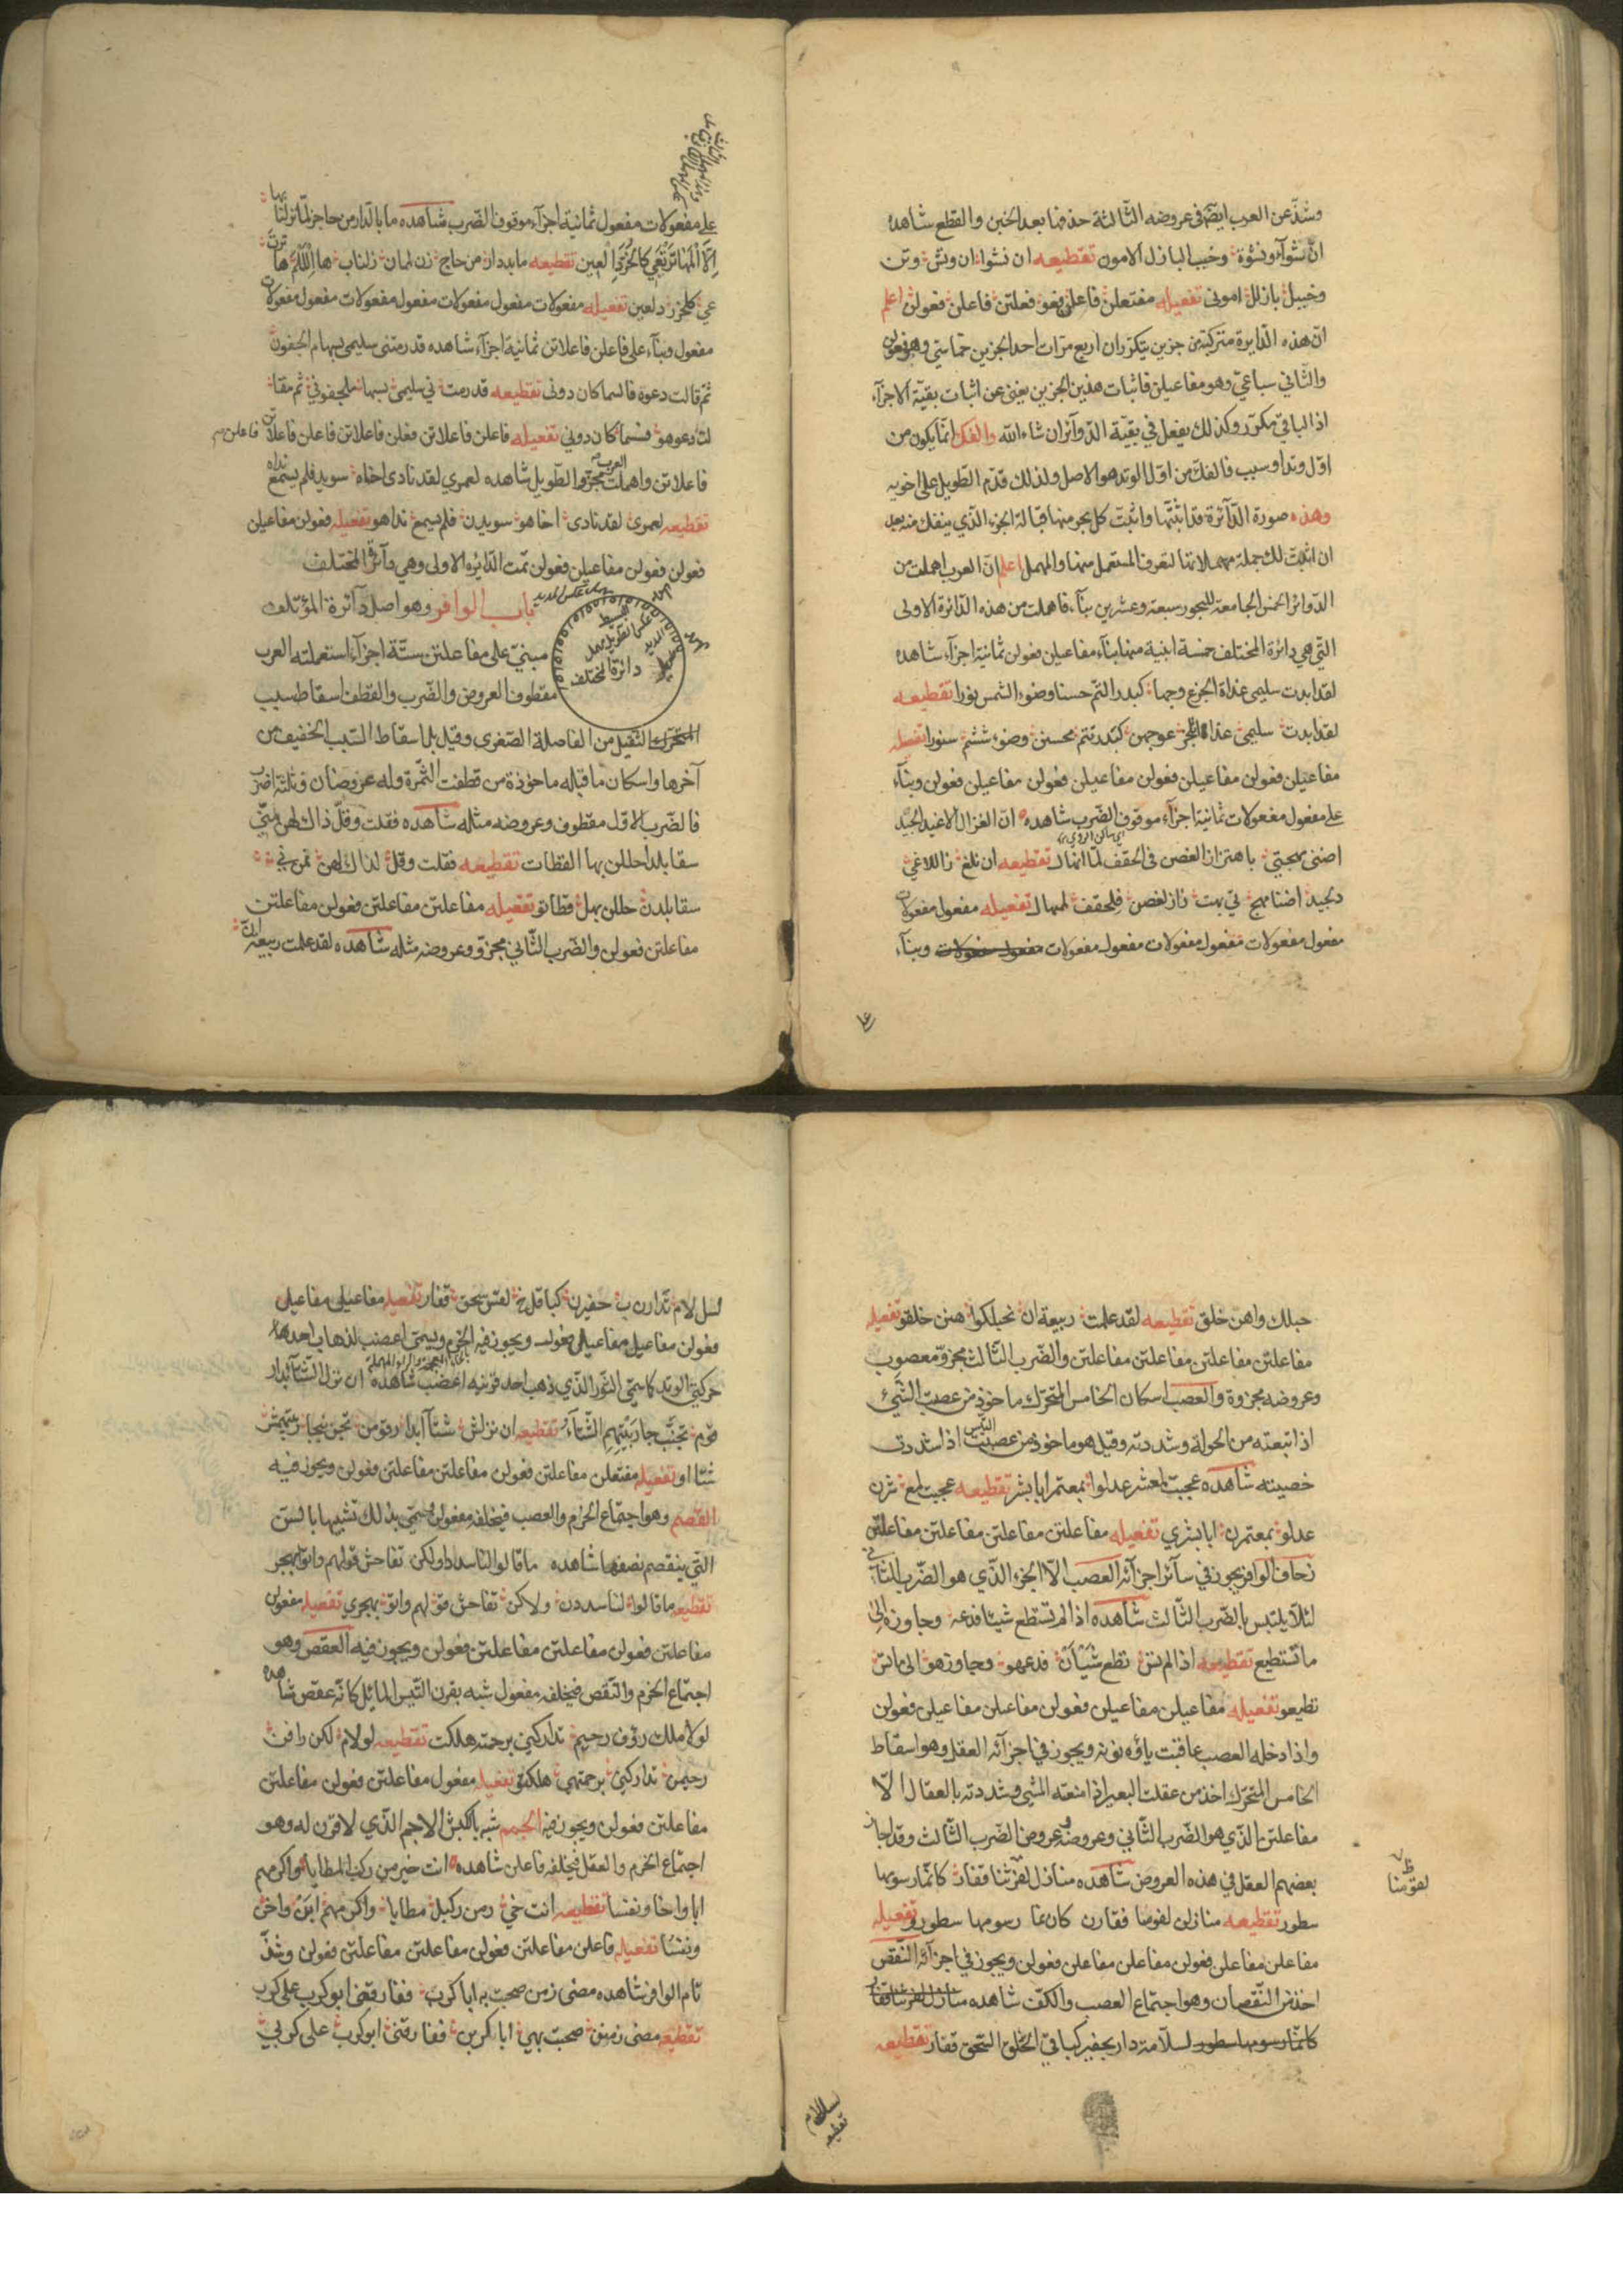 وشذ عن العرب ايضا فى عروضه الثالثة حذفها بعد الخبن والقطع شاهده
ان شوآء ونشوة وخبب البازل الامون تقطيعه ان نشوا ان ونش وتن
وخببل بازلل اموني تفعيله مفتعلن فاعلن فعو فعلتن فاعلن فعولن اعلم
ان هذه الدايرة متركبة من جزين يتكرران اربع مرات احد الجزين خماسي وهو فعولن
والثاني سباعي وهو مفاعيلن فاثبات هذين الجزين يغنى عن اثبات بقية الاجزآء
اذ الباقي مكرر وكذلك يفعل في بقية الدوآئر ان شاء الله والفك انما يكون من
اول وتد او سبب فالفك من اول الوتد هو الاصل ولذلك قدم الطويل على اخويه
وهذه صورة الدآئرة قد اثبتها واثبت كل بحر منها قبالة الجزء الذي ينفك منه بعد
ان اثبت لك جملة مهملاتها لتعرف المستعمل منها والمهمل اعلم ان العرب اهملت من
الدوائر الخمس الجامعة للبحور سبعة وعشرين بنآء فاهملت من هذه الدائرة الاولى
التي هي دائرة المختلف خمسة ابنية منها بنآء مفاعيلن فعولن ثمانية اجزآء شاهده
لقد ابدت سليمى غداة الجزع وجها كبدر التم حسنا وضوء الشمس نورا تقطيعه
لقد ابدت سليمى غدا تلجز عوجهن كبدر تتم محسنن وضوء ششم سنورا تفعيله
مفاعيلن فعولن مفاعيلن فعولن مفاعيلن فعولن مفاعيلن فعولن وبنآء
على مفعول مفعولات ثمانية اجزآء موقوف الضرب شاهده ان الغزال الاغيد الجيد
اضنى مهجتي باهتزاز الغصن فى الحقف لما انهال تقطيعه ان نلغ زاللاغي
دلجيد اضنا مهج تي بهت زاز لغصن فلحقف لممهال تفعيله مفعول مفعولات
مفعول مفعولات مفعول مفعولات مفعول مفعولات مفعول مفعولات وبنآء
على مفعولات مفعول ثمانية اجزآء موقوف الضرب شاهده ما بالدار من حاجز لما نزلنا بها
الا المها ترتعي كالخزر العين تقطيعه ما بددار من حاج زن لمان زلناب ها اللمها ترت
عي كلخزر دلعين تفعيله مفعولات مفعول مفعولات مفعول مفعولات مفعول مفعولات
مفعول وبنآء على فاعلن فاعلاتن ثمانية اجزآء شاهده قد رمتنى سليمى بسهام الجفون
ثم قالت دعوه فالسما كان دونى تقطيعه قد رمت ني سليمى بسها ملجفوني ثم مقا
لت دعوهو فسسما كان دوني تفعيله فاعلن فاعلاتن فعلن فاعلاتن فاعلن فاعلاتن فاعلن
فاعلاتن واهملت العرب مجزو الطويل شاهده لعمري لقد نادى اخاه سويد فلم يسمع نداه
تقطيعه لعمري لقد نادى اخاهو سويدن فلم يسمع نداهو تفعيله فعولن مفاعيلن
فعولن فعولن مفاعيلن فعولن تمت الدائره الاولى وهي دآئرة المختلف
باب الوافر وهو اصل دآئرة المؤتلف
البسيط
عكس الطويل مهمل
المديد
الطويل
دائرة المختلف
مبنى على مفاعلتن ستة اجزآء استعملته العرب
مقطوف العروض والضرب والقطف اسقاط سبب
المتحرك الثقيل من الفاصلة الصغرى وقيل بل اسقاط السبب الخفيف من
آخرها واسكان ما قبله ماخوذة من قطفت الثمرة وله عروضان وثلثة اضرب
فالضرب الاول مقطوف وعروضه مثله شاهده فقلت وقل ذاك لهن منى
سقا بلدا حللن بها القطات تقطيعه فقلت وقل لذاك لهن نمن ني
سقا بلدن حللن بهل قطاتو تفعيله مفاعلتن مفاعلتن فعولن مفاعلتن
مفاعلتن فعولن والضرب الثاني مجزو وعروضه مثله شاهده لقد علمت ربيعة ان
حبلك واهن خلق تقطيعه لقد علمت ربيعة ان نحبلكوا هنن خلقو تفعيله
مفاعلتن مفاعلتن مفاعلتن مفاعلتن والضرب الثالث مجزو معصوب
وعروضه مجزوة والعصب اسكان الخامس المتحرك ماخوذ من عصبت الشئ
اذا تبعته من الحولة وشددته وقيل هو ماخوذ من عصبت التيس اذا شددت
خصيته شاهده عجبت لمعشر عدلوا بمعتمر ابا بشر تقطيعه عجبت لمع شرن
عدلو بمعتمرن ابا بشري تفعيله مفاعلتن مفاعلتن مفاعلتن مفاعلتن
زحاف الوافر يجوز في سآئر اجزآئه العصب الا الجزء الذي هو الضرب الثاني
لئلا يلتبس بالضرب الثالث شاهده اذا لم تستطع شيئا فدعه وجاوزه الى
ما تستطيع تقطيعه اذا لم تس تطع شيأن فدعهو وجاوزهو الى ما تس
تطيعو تفعيله مفاعيلن مفاعيلن فعولن مفاعيلن مفاعيلن فعولن
واذا دخله العصب عاقبت ياؤه نونه ويجوز في اجزآئه العقل وهو اسقاط
الخامس المتحرك اخذ من عقلت البعير اذا منعته المشى وشددته بالعقال الا
مفاعلتن الذي هو الضرب الثاني وعروضه وعروض الضرب الثالث وقد اجاز
بعضهم العقل في هذه العروض شاهده منازل لفرتنا قفار كانما رسومها
لفومنا
سطور تقطيعه منازلن لفومنا قفارن كان نما رسومها سطورو تفعيله
مفاعلن مفاعلن فعولن مفاعلن مفاعلن فعولن ويجوز في اجزآئه النقص
اخذ من النقصان وهو اجتماع العصب والكف شاهده منازل لفرتنا قفار
كانما رسومها سطور لسلامة دار بحفير كباقي الخلق السحق قفار تقطيعه
لسل لام تدارن ب حفيرن كباقل خ لقس سحق قفار تفعيله مفاعيل مفاعيل
فعولن مفاعيل مفاعيل فعولن ويجوز فيه الخرم ويسمى اعضب لذهاب احدها
حركتي الوتد كما سمى الثور الذي ذهب احد قرنيه اعضب شاهده ان نزل الشتآء بدار
قوم تجنب جار بيتهم الشتاء تقطيعه ان نزلش شتآ أبدا رقومن تجن نبجا ربيتهمش
شتا او تفعيله مفتعلن مفاعلتن فعولن مفاعلتن مفاعلتن فعولن ويجوز فيه
القصم وهو اجتماع الخرم والعصب فيخلفه مفعولن وسمي بذلك تشبيها بالسن
التي ينقصم نصفها شاهده ما قالوا لنا سددا ولكن تفاحش قولهم واتوا بهجر
تقطيعه ما قالوا لنا سددن ولاكن تفاحش قو لهم واتو بهجري تفعيله مفعولن
مفاعلتن فعولن مفاعلتن مفاعلتن فعولن ويجوز فيه العقص وهو
اجتماع الخرم والنقص فيخلفه مفعول شبه بقرن التيس المائل كانه عقص شاهده
لولا ملك رؤف رحيم تداركني برحمته هلكت تقطيعه لولام لكن رافن
رحيمن تداركني برحمتهي هلكتو تفعيله مفعول مفاعلتن فعولن مفاعلتن
مفاعلتن فعولن ويجوز فيه الجمم شبه بالكبش الاجم الذي لا قرن له وهو
اجتماع الخرم والعقل فيخلفه فاعلن شاهده انت خير من ركب المطايا واكرمهم
ابا واخا ونفسا تقطيعه انت خي رمن ركبل مطايا واكرمهم ابن واخن
ونفسا تفعيله فاعلن مفاعلتن فعولن مفاعلتن مفاعلتن فعولن وشذ
تام الوافر شاهده مضى زمن صحبت به ابا كرب ففارقنى ابو كرب على كرب
تقطيعه مضى زمنن صحبت بهي ابا كربن ففارقني ابو كرب على كربي
لسل لام
تقطيعه